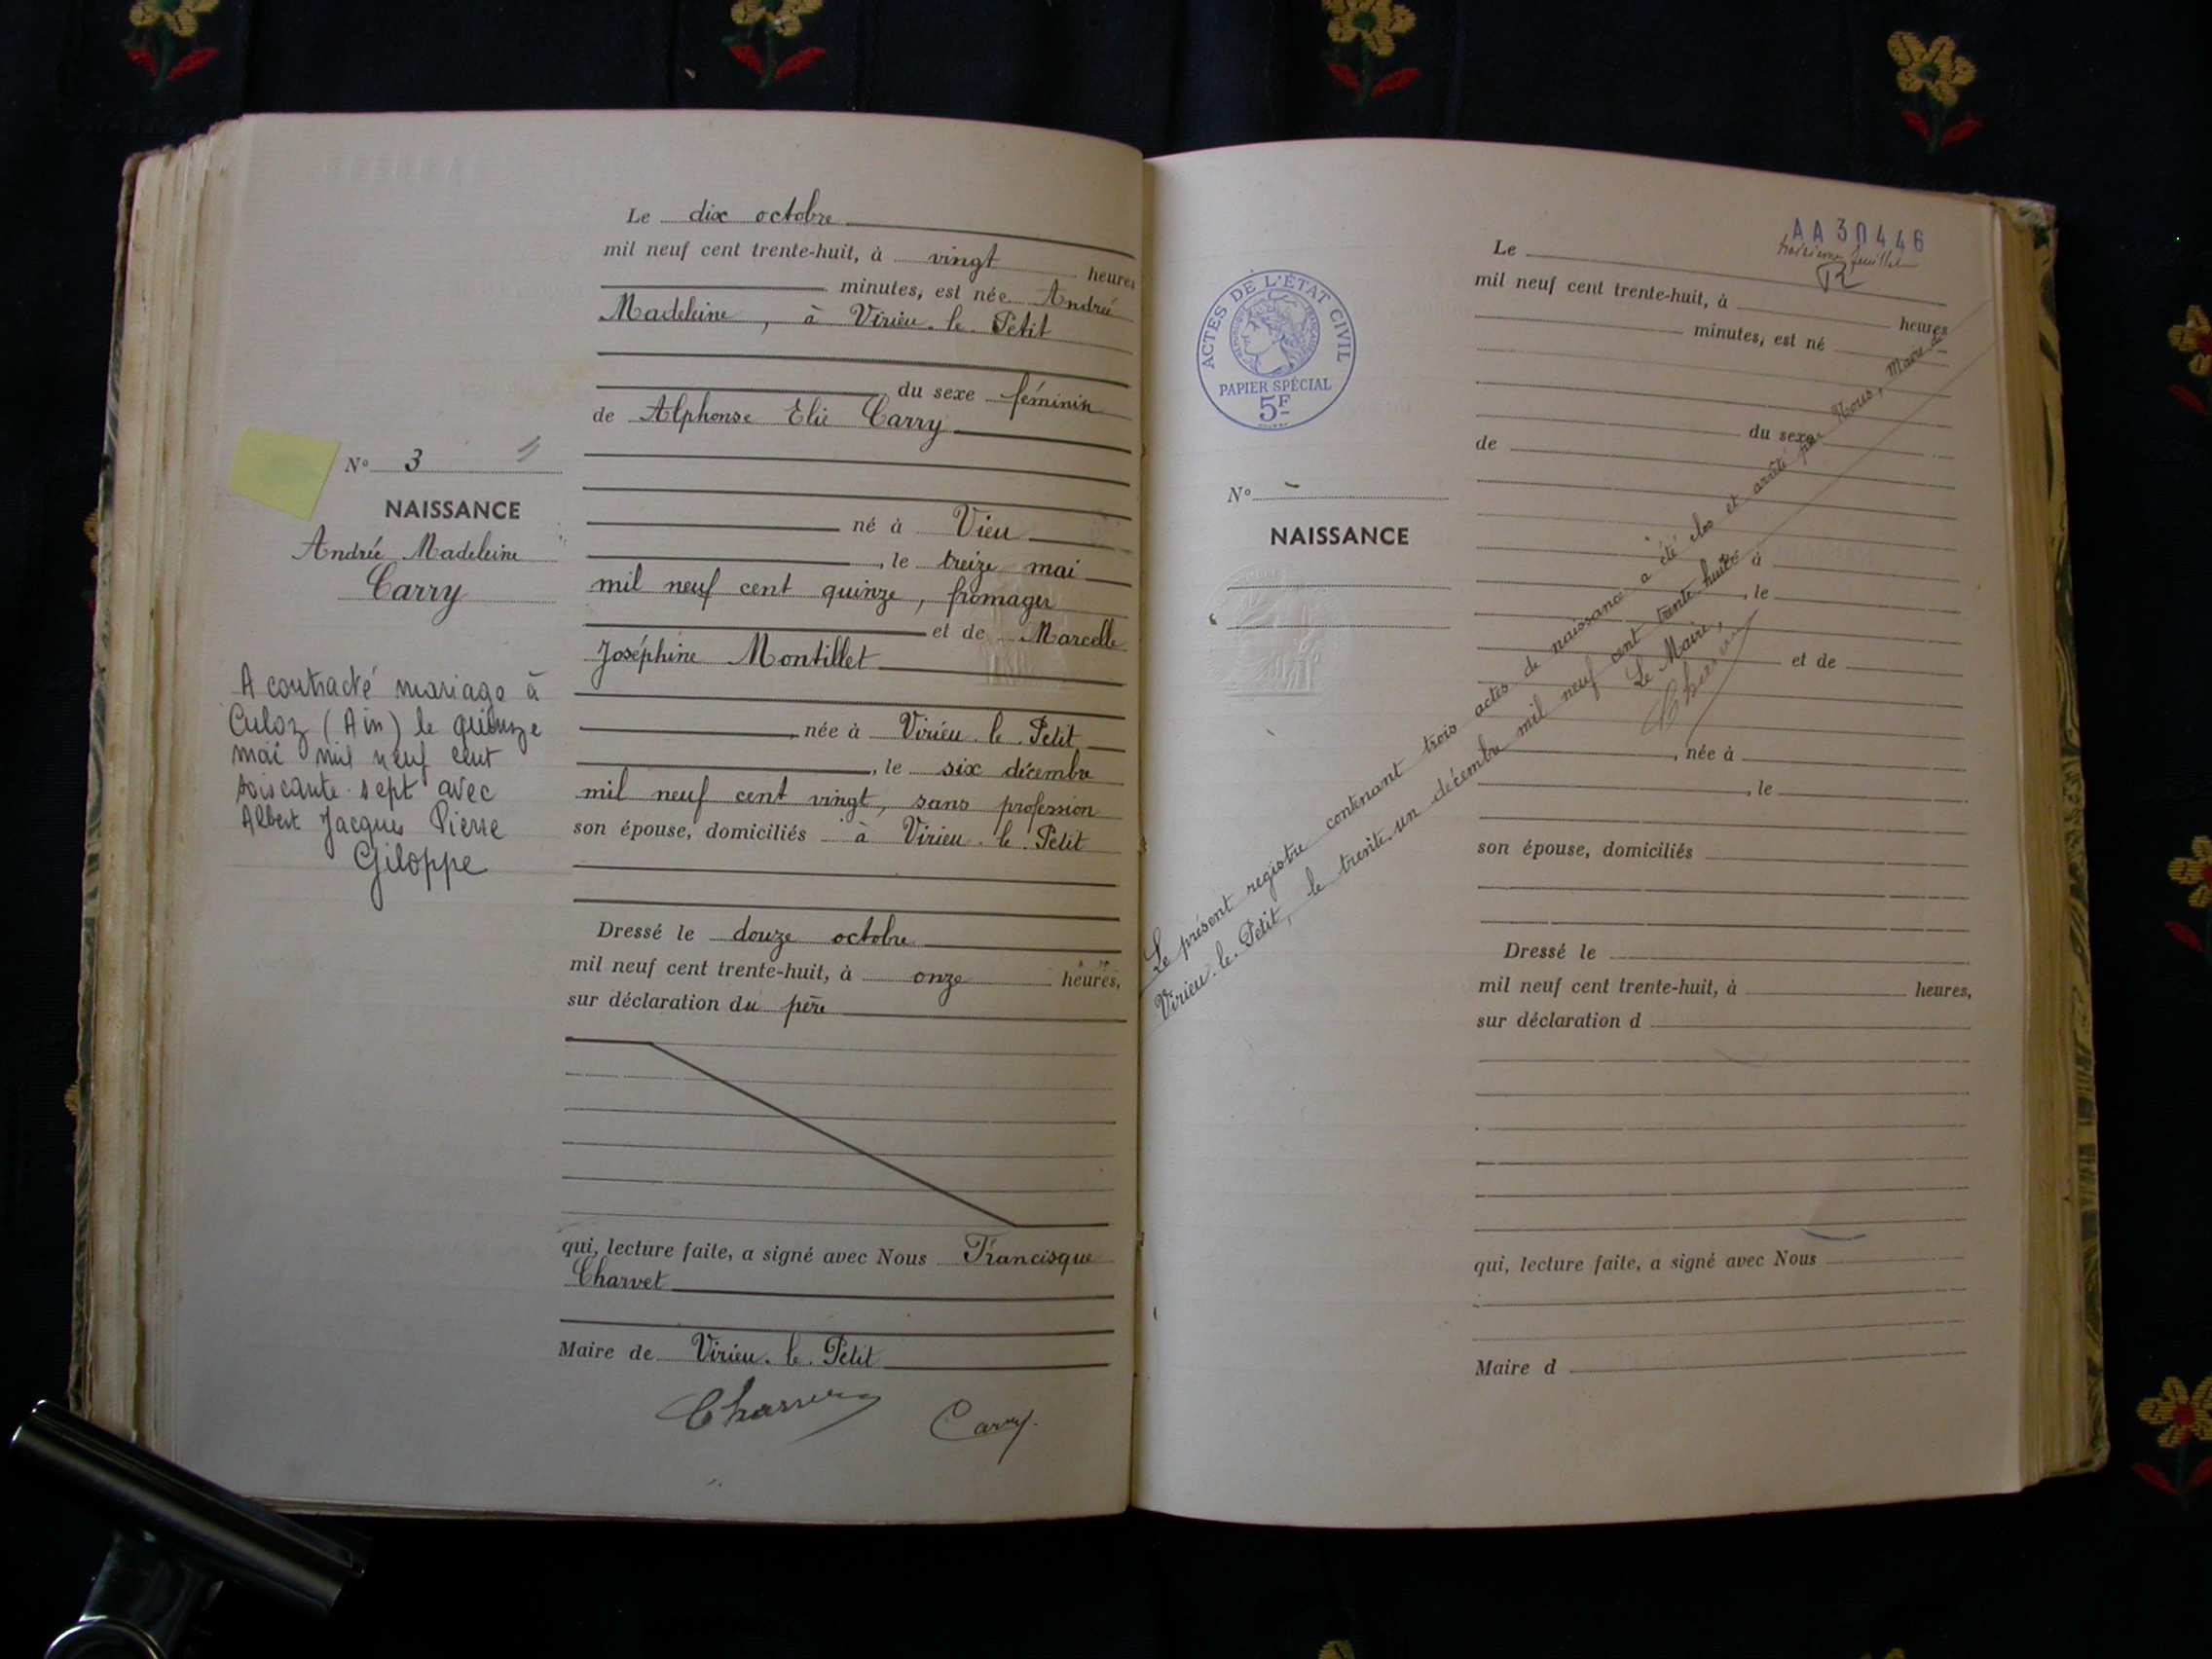 Le dix octobre
mil neuf cent trente-huit, à vingt heures
minutes, est née Andrée
Madeleine, à Virieu-le-Petit
du sexe féminin
de Alphonse Elie Carry
né à Vieu
, le treize mai
mil neuf cent quinze, fromager
et de Marcelle
Joséphine Montillet
née à Virieu-le-Petit
, le six décembre
mil neuf cent vingt, sans profession
son épouse, domiciliés à Virieu-le-Petit
Dressé le douze octobre
mil neuf cent trente-huit, à onze heures,
sur déclaration du père
qui, lecture faite, a signé avec Nous Francisque
Charvet
Maire de Virieu-le-Petit
Carry.
N° 3
NAISSANCE
Andrée Madeleine
Carry
A contracté mariage à
Culoz (Ain) le quinze
mai mil neuf cent
soixante-sept avec
Albert Jacques Pierre
Giloppe
AA 30446
troisième feuillet
ACTES DE L'ÉTAT CIVIL
PAPIER SPÉCIAL
5F
N°
NAISSANCE
Le
mil neuf cent trente-huit, à heures
minutes, est né
du sexe
de
à
, le
et de
, née à
, le
son épouse, domiciliés
Dressé le
mil neuf cent trente-huit, à heures,
sur déclaration d
qui, lecture faite, a signé avec Nous
Maire d
Le présent registre contenant trois actes de naissance a été clos et arrêté par Nous, Maire de
Virieu-le-Petit, le trente-un décembre mil neuf cent trente huit
Le Maire,